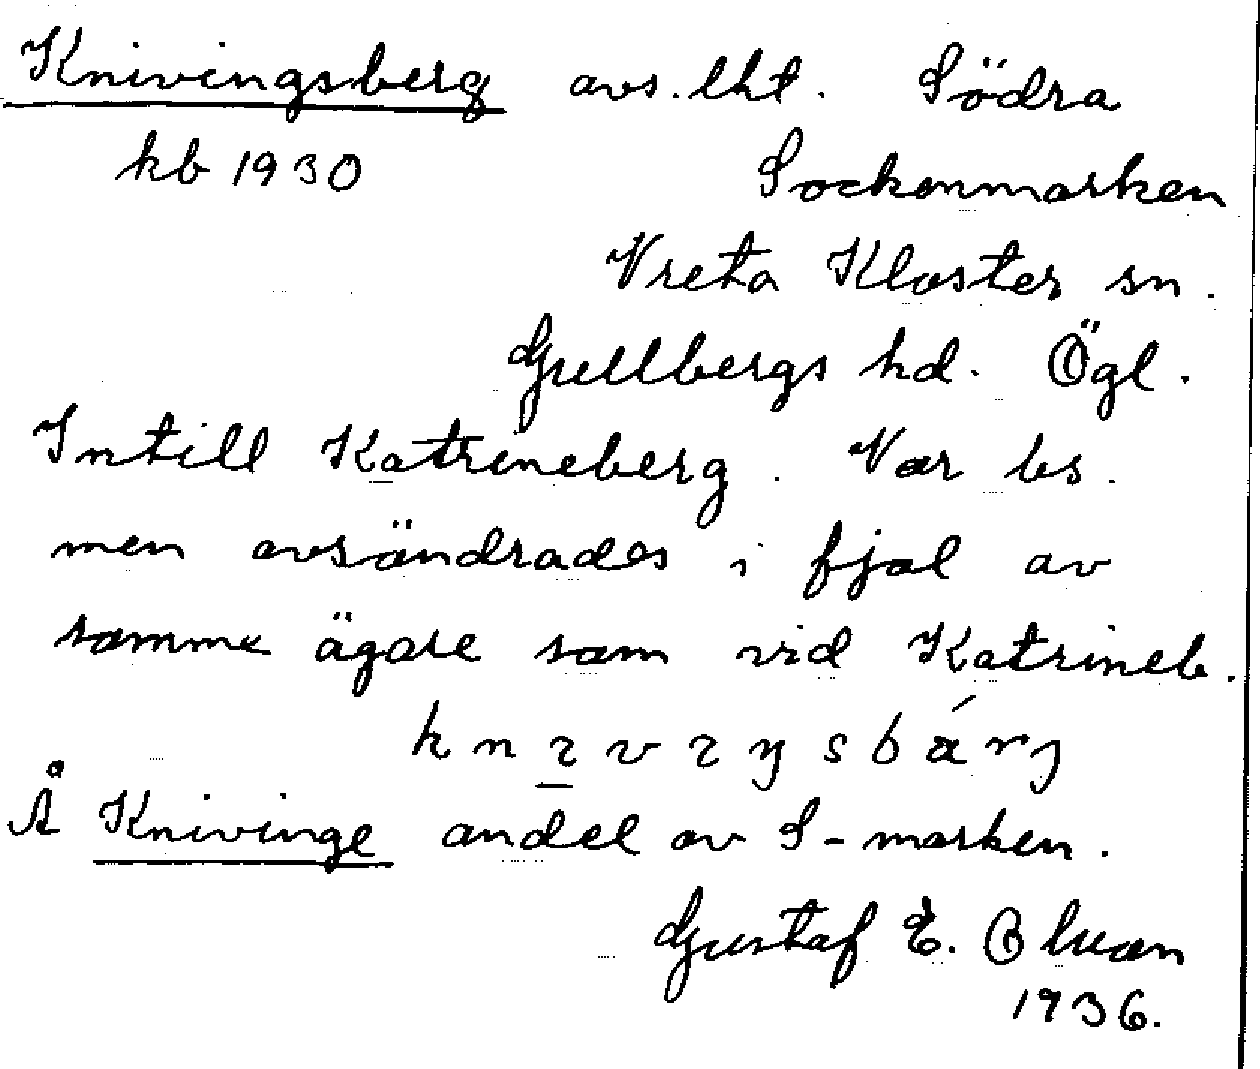 Knivingsberg avs. lht. Södra
kb 1930 Sockenmarken
Vreta Kloster sn.
Gullbergs hd. Ögl.
Intill Katrineberg. Var bs.
men avsöndrades i fjol av
samme ägare som vid Katrineb.
Å Knivinge andel av S-marken.
Gustaf E.
1936.